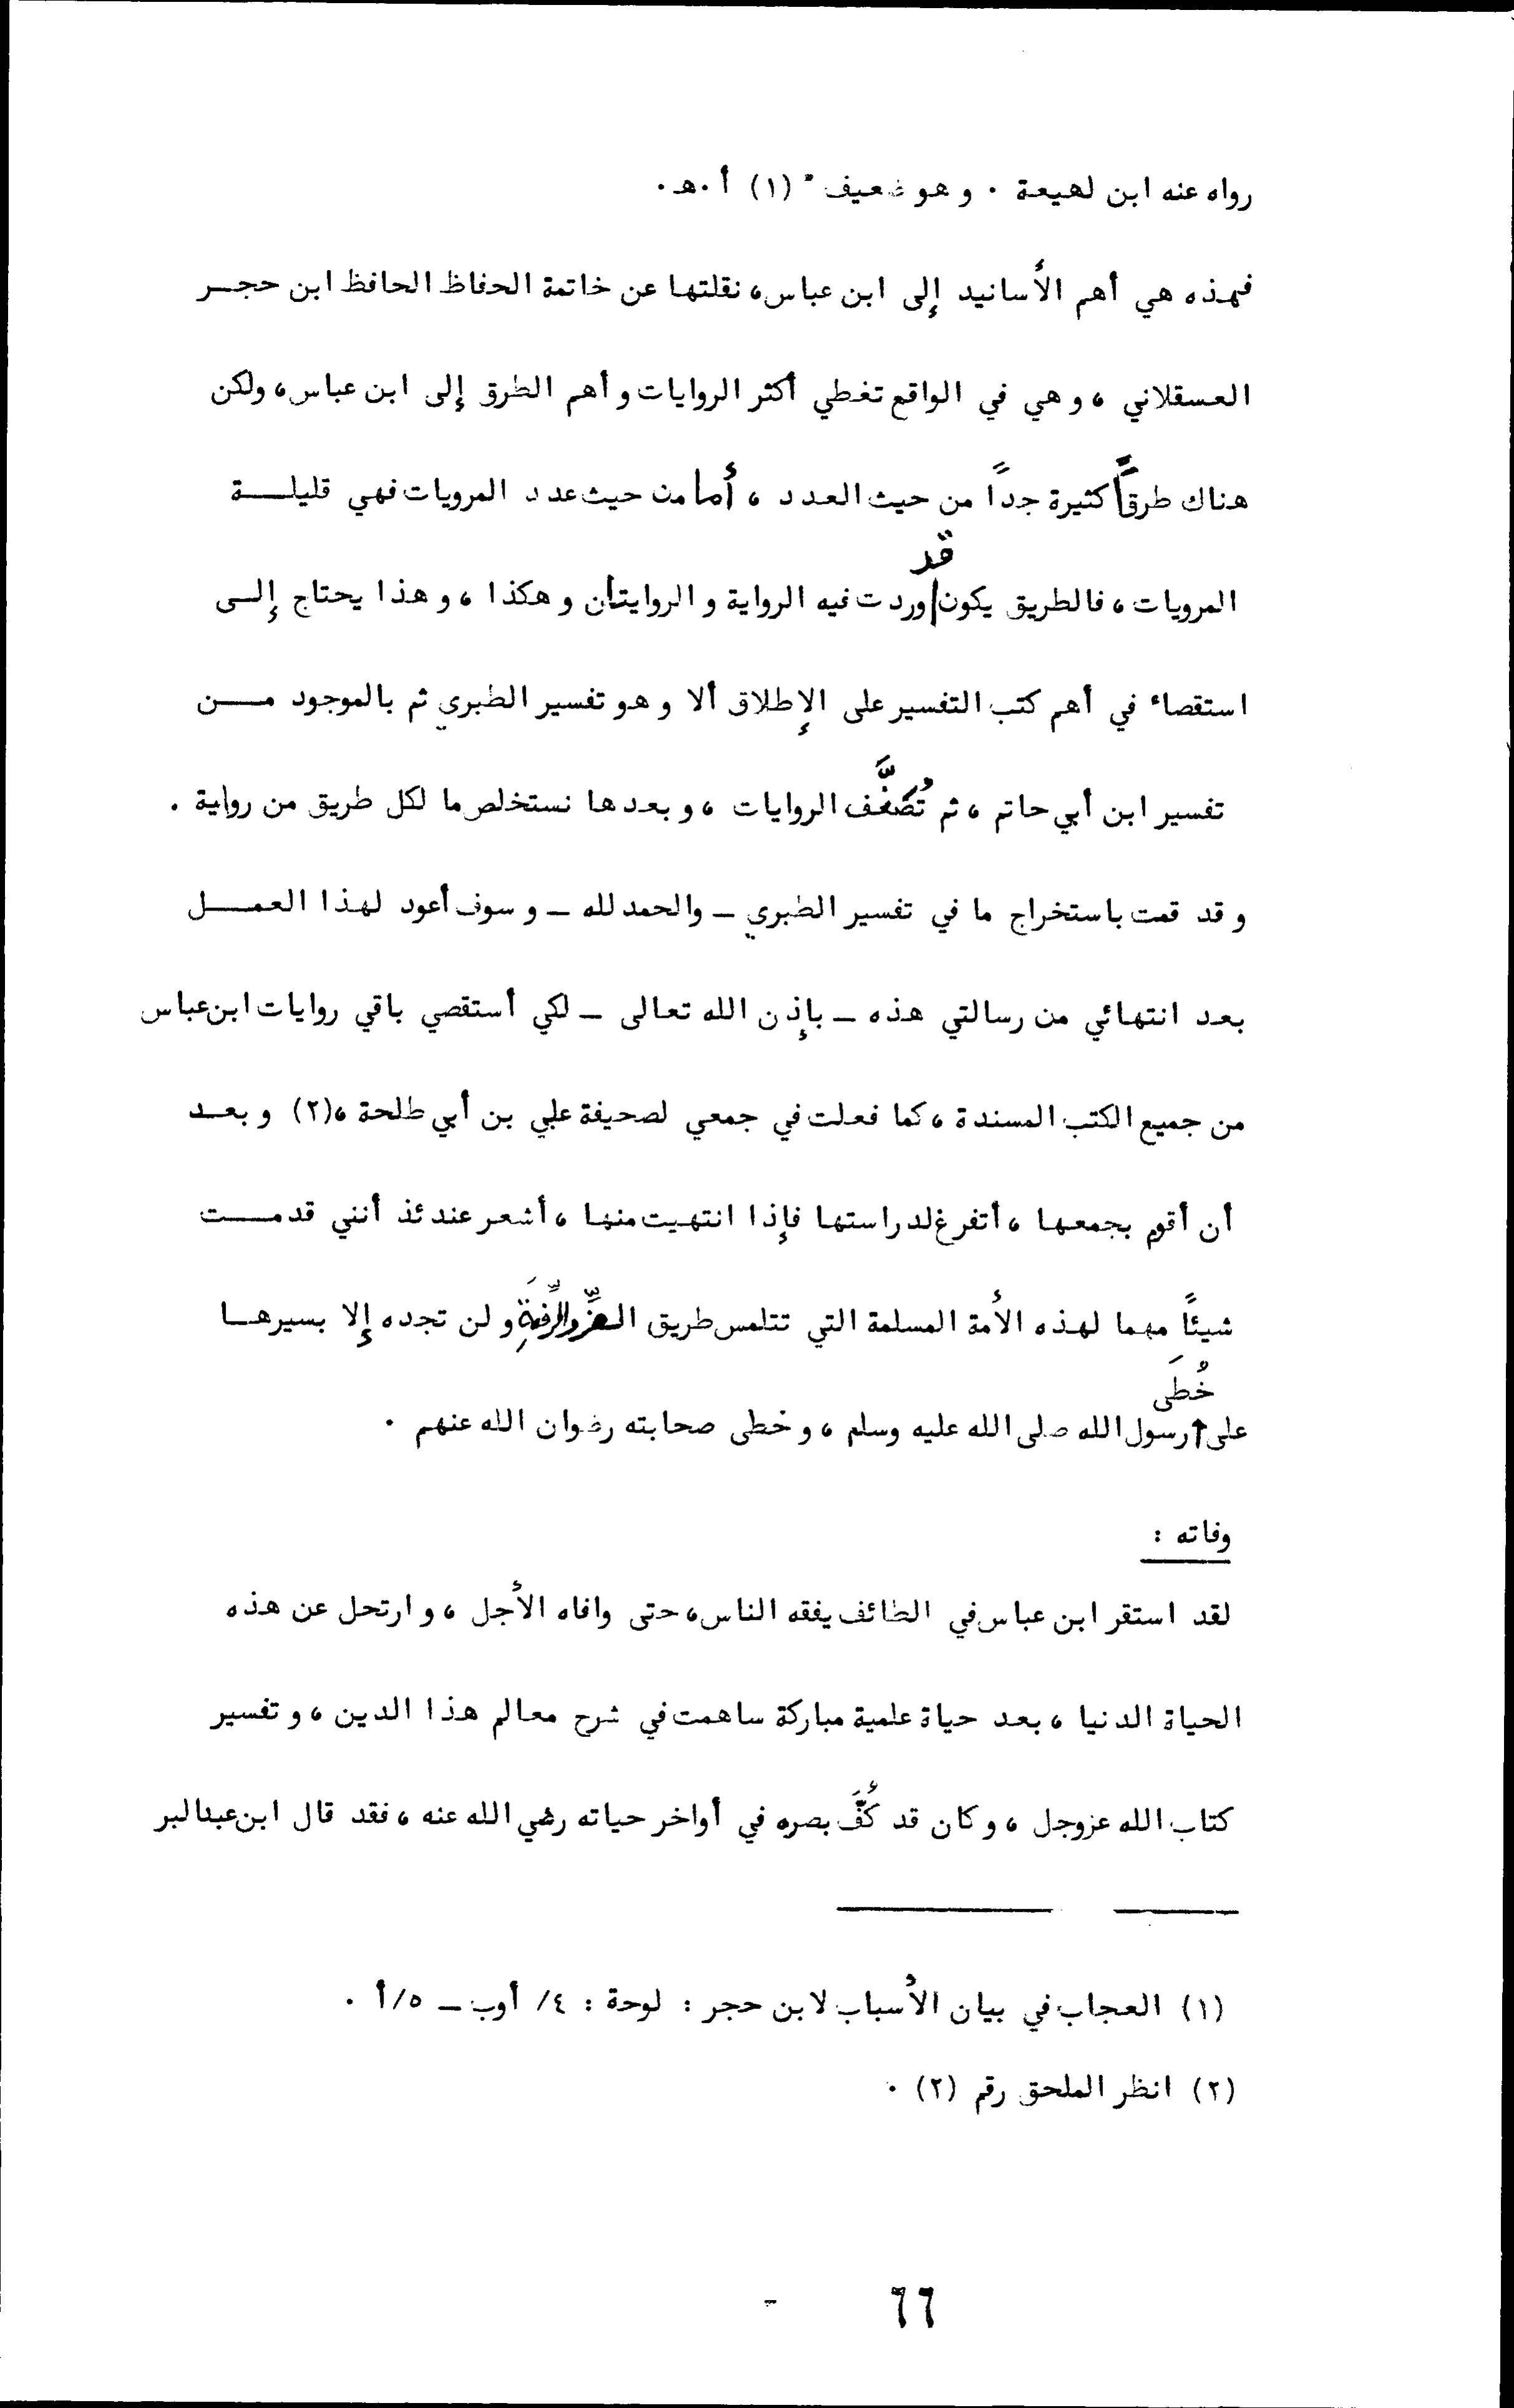 رواه عنه ابن لهيعة . وهو ضعيف " (١) أ.هـ.
فهذه هي أهم الأسانيد إلى ابن عباس، نقلتها عن خاتمة الحفاظ الحافظ ابن حجــر
العسقلاني ، وهي في الواقع تغطي أكثر الروايات وأهم الطرق إلى ابن عباس، ولكن
هناك طرقاً كثيرة جداً من حيث العدد ، أما من حيث عدد المرويات فهي قليلــة
المرويات ، فالطريق يكون قد وردت فيه الرواية والروايتان وهكذا ، وهذا يحتاج إلــى
استقصاء في أهم كتب التفسير على الإطلاق ألا وهو تفسير الطبري ثم بالموجود مــن
تفسير ابن أبي حاتم ، ثم تُصَنَّف الروايات ، وبعدها نستخلص ما لكل طريق من رواية .
وقد قمت باستخراج ما في تفسير الطبري ـ والحمد لله ـ وسوف أعود لهذا العمــل
بعد انتهائي من رسالتي هذه ـ بإذن الله تعالى ـ لكي أستقصي باقي روايات ابن عباس
من جميع الكتب المسندة ، كما فعلت في جمعي لصحيفة علي بن أبي طلحة ،(٢) وبعــد
أن أقوم بجمعها ، أتفرغ لدراستها فإذا انتهيت منها ، أشعر عندئذ أنني قدمــت
شيئاً مهما لهذه الأمة المسلمة التي تتلمس طريق العزِّ والرِّفعَةِ ولن تجده إلا بسيرهــا
على خُطَى رسول الله صلى الله عليه وسلم ، وخطى صحابته رضوان الله عنهم .
وفاته :
لقد استقر ابن عباس في الطائف يفقه الناس، حتى وافاه الأجل ، وارتحل عن هذه
الحياة الدنيا ، بعد حياة علمية مباركة ساهمت في شرح معالم هذا الدين ، وتفسير
كتاب الله عزوجل ، وكان قد كُفَّ بصره في أواخر حياته رضي الله عنه ، فقد قال ابن عبدالبر
(١) العجاب في بيان الأسباب لابن حجر : لوحة : ٤/ أوب ـ ٥/أ .
(٢) انظر الملحق رقم (٢) .
٦٦